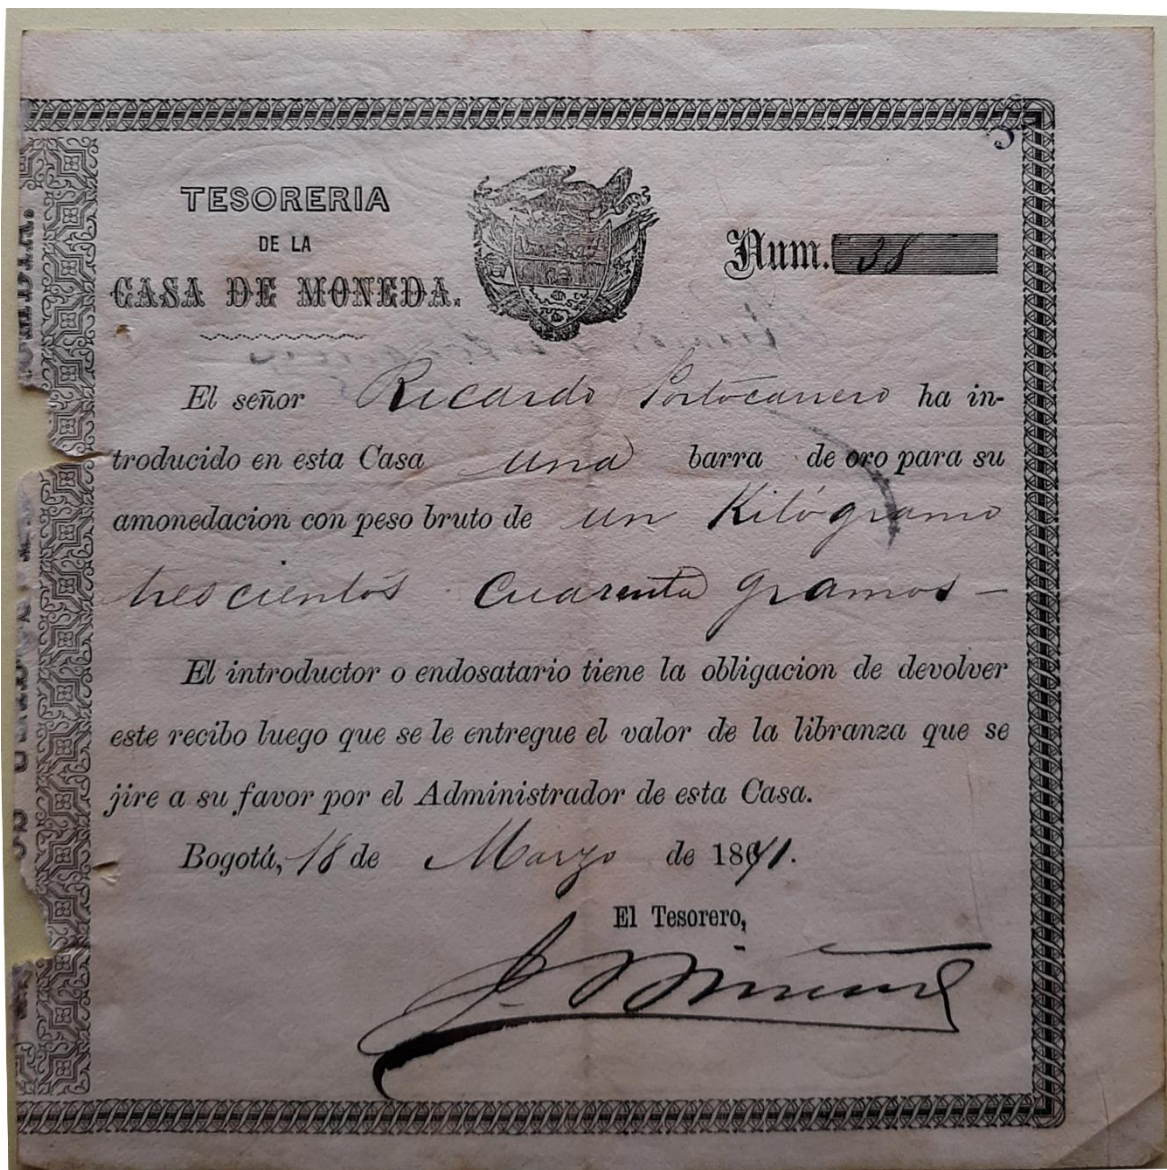 TESORERIA
DE LA
CASA DE MONEDA.
Num. 38
El señor Ricardo Portocarrero ha in-
troducido en esta Casa una barra de oro para su
amonedacion con peso bruto de un Kilógramo
trescientos cuarenta gramos —
El introductor o endosatario tiene la obligacion de devolver
este recibo luego que se le entregue el valor de la libranza que se
jire a su favor por el Administrador de esta Casa.
Bogotá, 18 de Marzo de 1871.
El Tesorero,